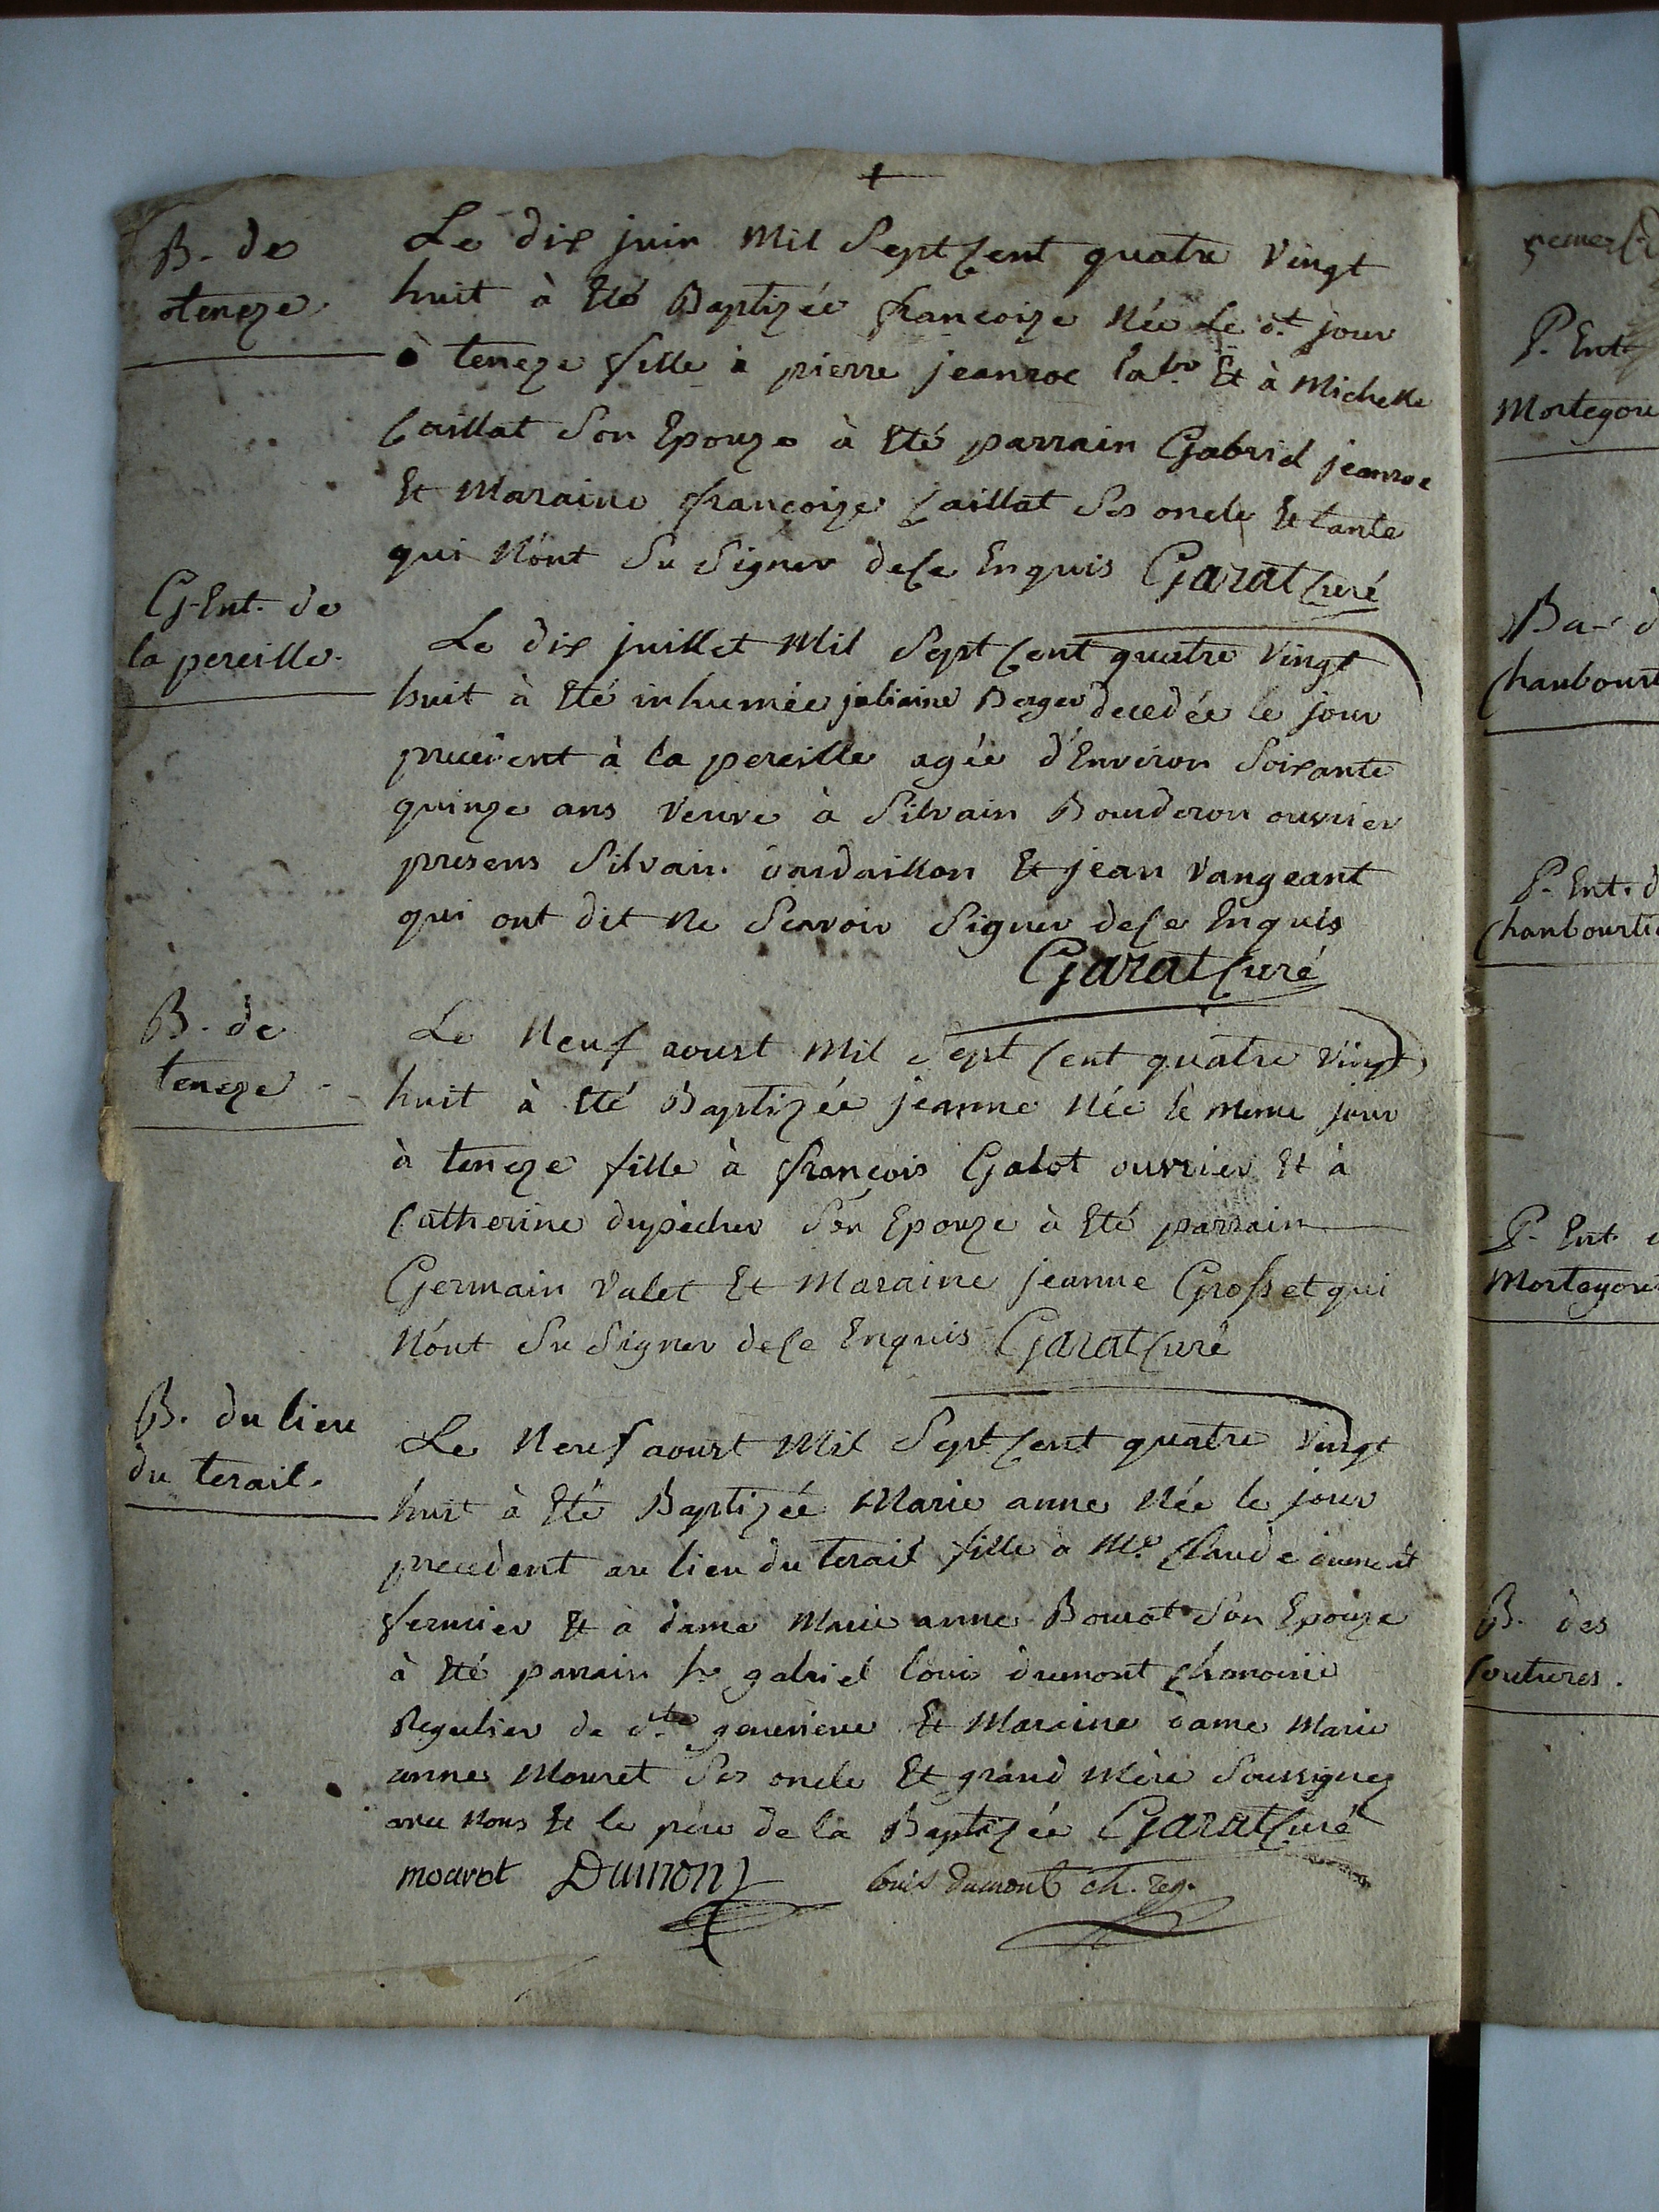 B. de
teneze
Le dix juin Mil Sept Cent quatre Vingt
huit à Eté Baptizée francoize Née Le dt jour
à teneze fille à pierre jeanroc labr Et à Michelle
Caillat Son Epouze à Eté parrain Gabriel jeanroc
Et Maraine francoize Caillat Ses oncle Et tante
qui N'ont Su Signer de Ce Enquis Garat Curé
G. Ent. de
la pereille.
Le dix juillet Mil Sept Cent quatre Vingt
huit à Eté inhumée Berger decedée le jour
precedent à la pereille agée d'Environ Soixante
quinze ans Veuve à Silvain Bourderon ouvrier
presens Silvain Et jean Vangeant
qui ont dit Ne Scavoir Signer de Ce Enquis
Garat Curé
B. de
teneze
Le Neuf aoust Mil Sept Cent quatre Vingt
huit à Eté Baptizée jeanne Née le meme jour
à teneze fille à francois Galot ouvrier Et à
Catherine dupècher Son Epouze à Eté parrain
Germain Valet Et Maraine jeanne Grosset qui
N'ont Su Signer de Ce Enquis Garat Curé
B. du lieu
du terail.
Le Neuf aoust Mil Sept Cent quatre Vingt
huit à Eté Baptizée Marie anne Née le jour
precedent au lieu du terail fille à Mr Claude dumont
fermier Et à dame Marie anne Bourot Son Epouze
à Eté parrain Sr gabriel loui dumont Chanoine
Regulier de Ste genevieve Et Maraine dame Marie
anne Mouret Ses oncle Et grand Mère Soussignez
avec Nous Et le père de la Baptizée Garat Curé
mouret Dumont louis dumont ch. reg.
P. Ent.
Mortegou
Ba d
Chambourt
P. Ent. d
Chambourti
P. Ent.
Mortegou
B. des
Coutures.